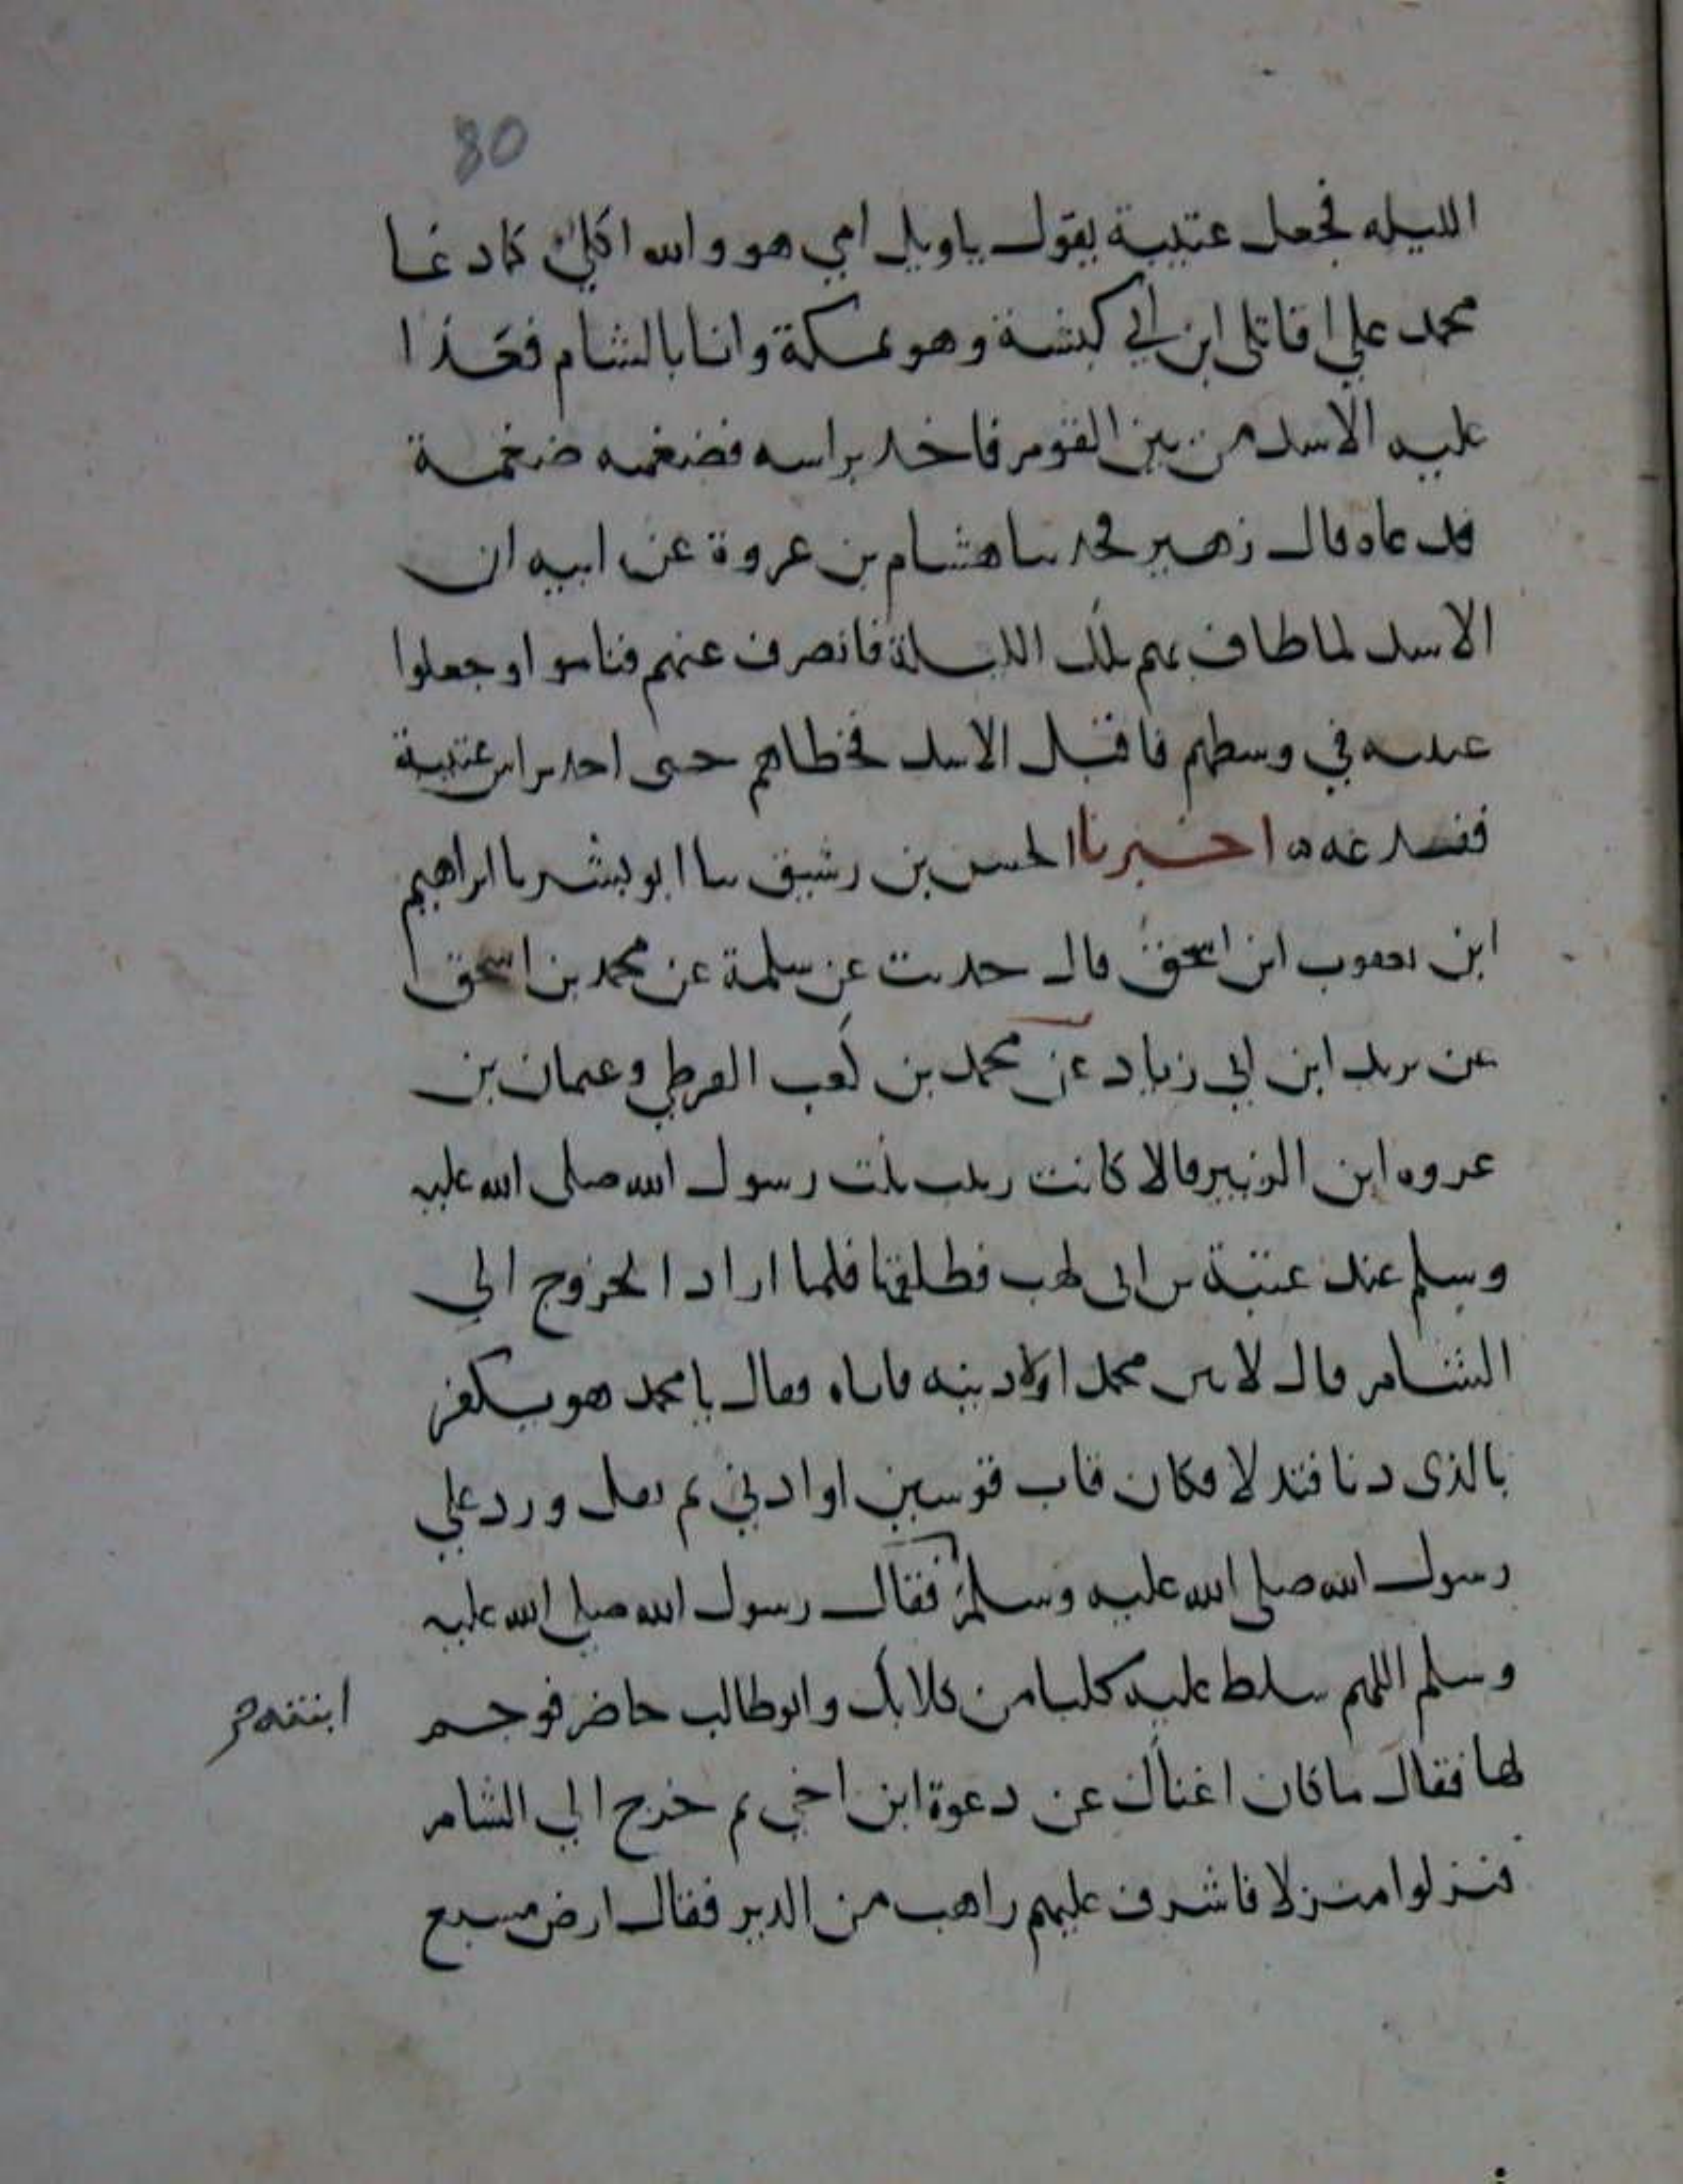 80
الليله فجعل عتيبة يقول ياويل امي هو والله اكلي كما دعا
محمد علي اقاتلي ابن ابي كبشة وهو بمكة وانا بالشام فعدا
عليه الاسد من بين القوم فاخد براسه فضغمه ضغمة
قال زهير فحدسا هشام بن عروة عن ابيه ان
الاسد لما طاف بهم تلك الليلة فانصرف عنهم فناموا وجعلوا
عتيبه في وسطهم فاقبل الاسد فخطاهم حتى احد براس عتيبة
ففدغه ه اخبرنا الحسن بن رشيق سا ابو بشر سا ابراهيم
ابن يعقوب ابن اسحق قال حدثت عن سلمة عن محمد بن اسحق
عن يزيد ابن ابي زياد عن محمد بن كعب القرظي وعثمان بن
عروه ابن الزبير قالا كانت زينب بنت رسول الله صلى الله عليه
وسلم عند عتبة بن ابي لهب فطلقها فلما اراد الخروج الي
الشام قال لاتين محمدا ولاذينه فاتاه فقال يا محمد هو يكفر
بالذي دنا فتدلا فكان قاب قوسين او ادني ثم تفل ورد علي
رسول الله صلى الله عليه وسلم فقال رسول الله صلى الله عليه
وسلم اللهم سلط عليه كلبا من كلابك وابو طالب حاضر فوجم
ابنته
لها فقال ماكان اغناك عن دعوة ابن اخي ثم خرج الي الشام
فنزلوا منزلا فاشرف عليهم راهب من الدير فقال ارض مسبع